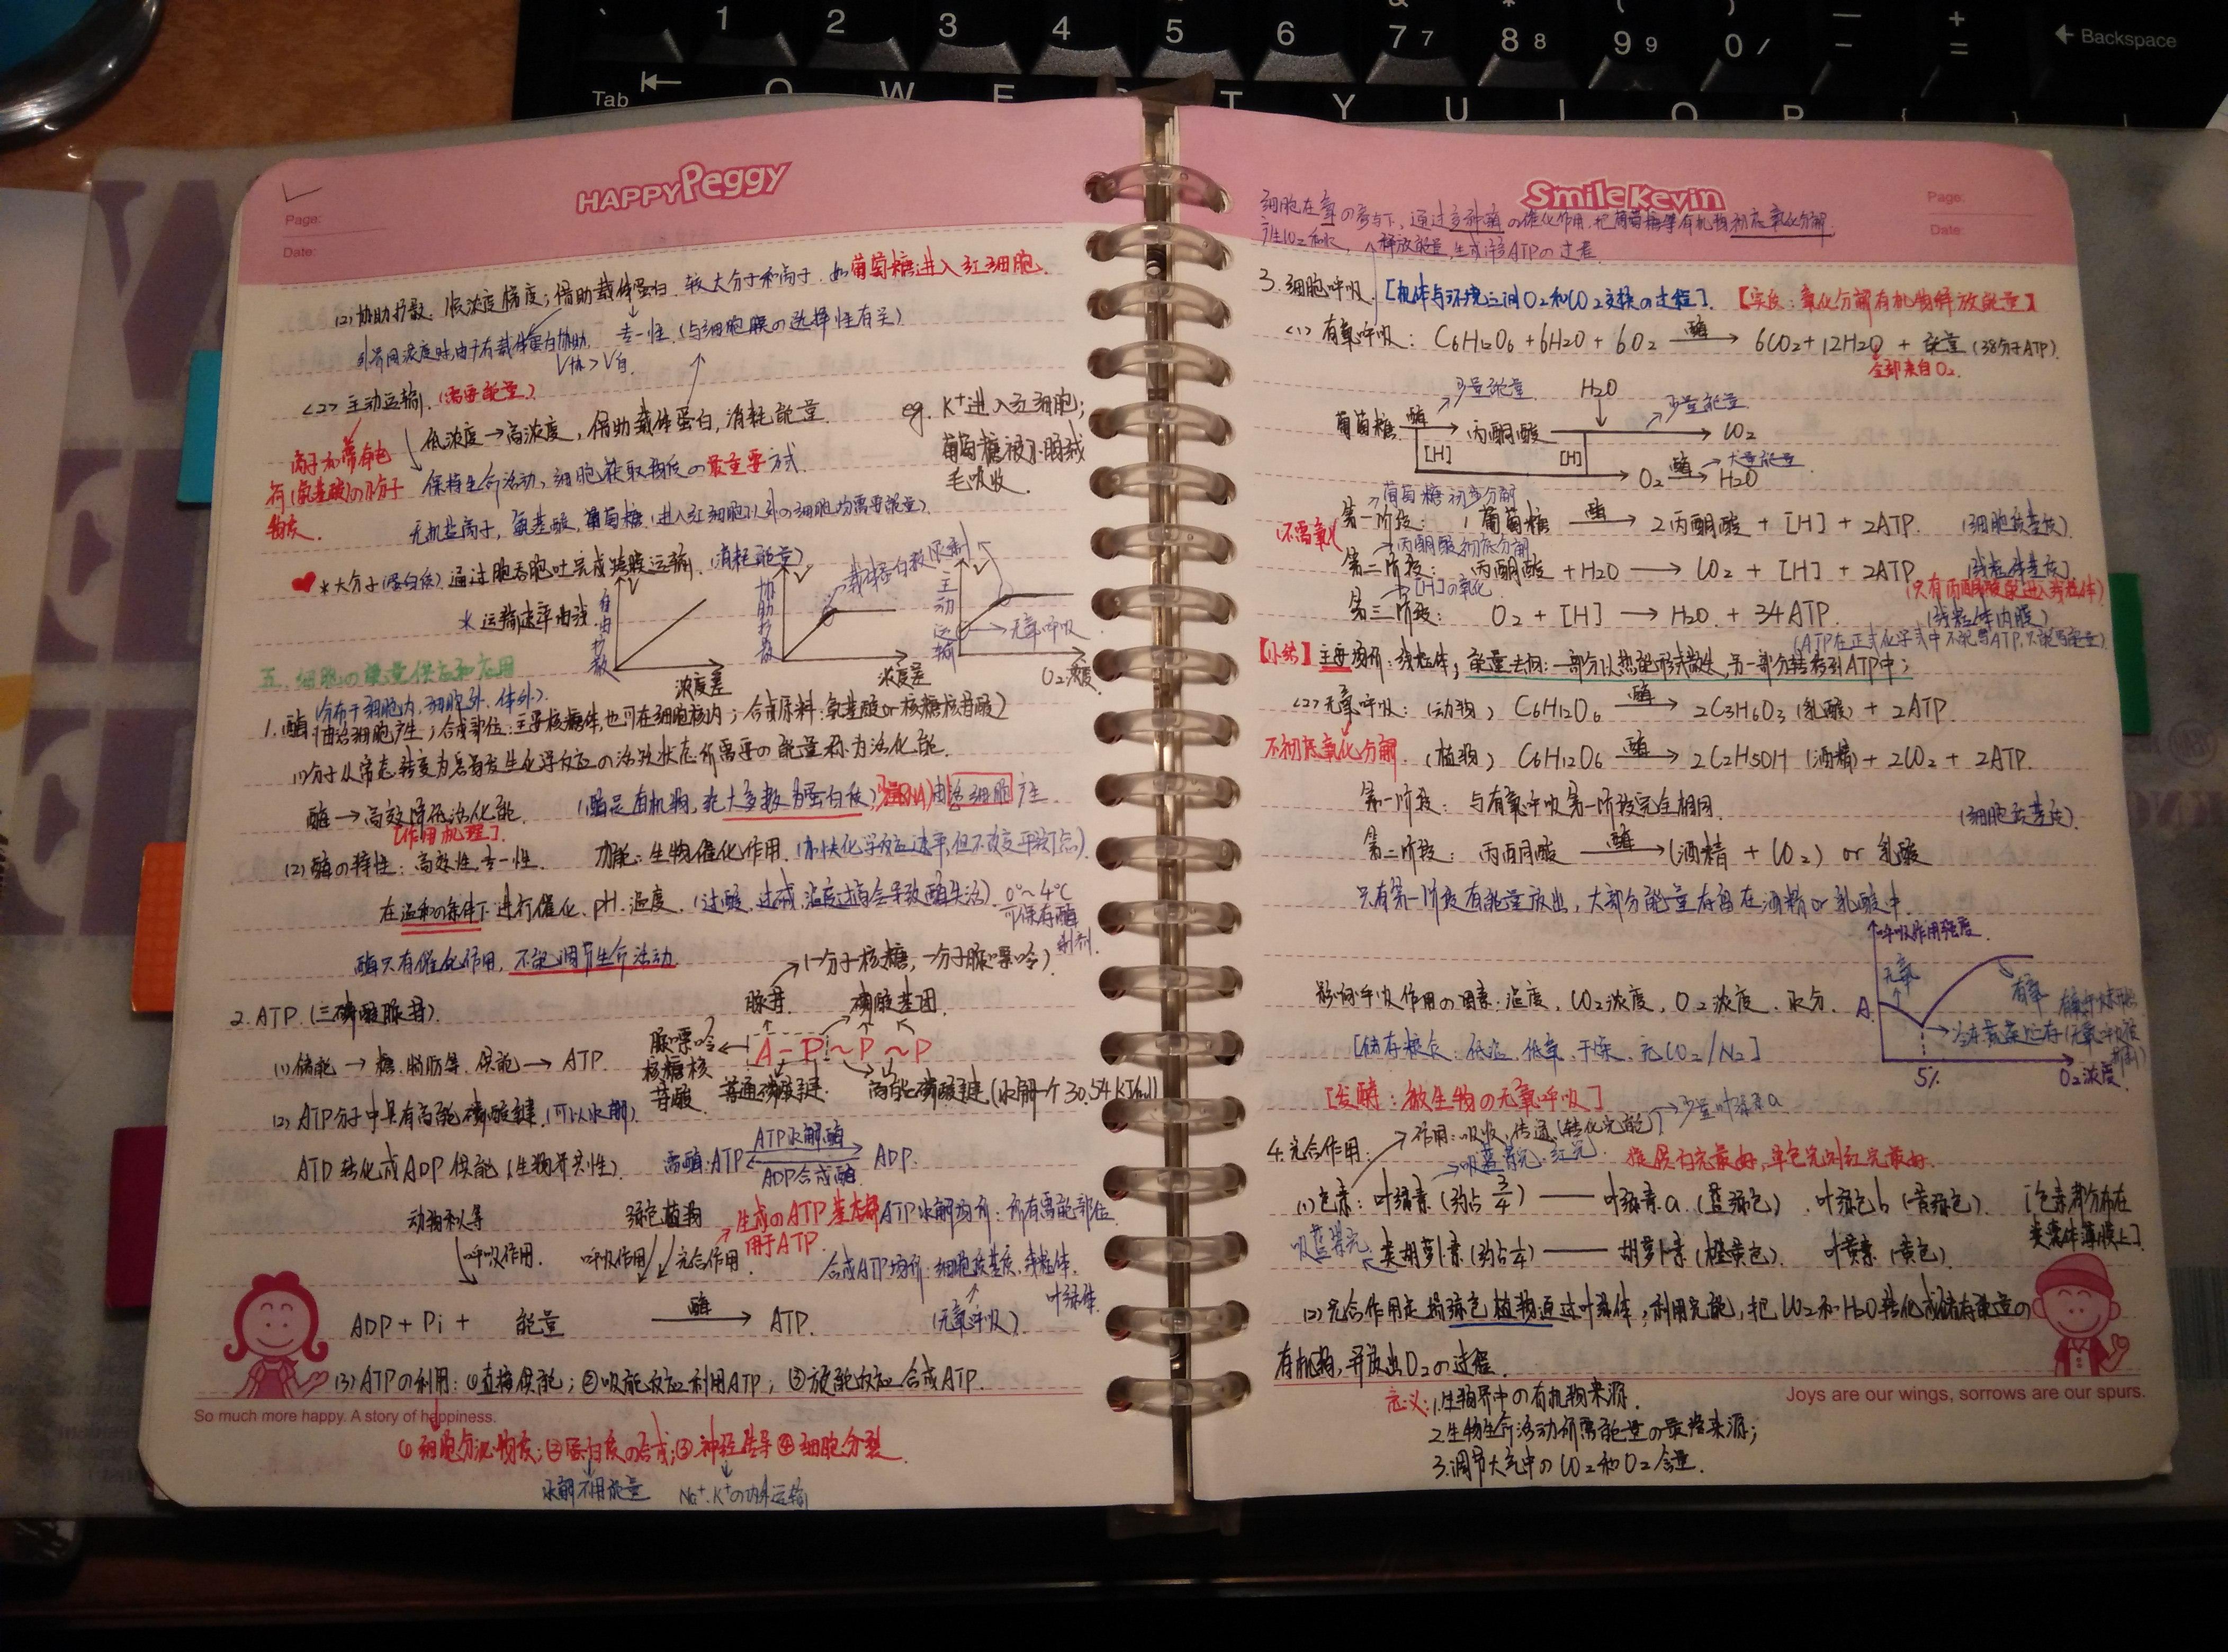 1 2 3 4 5 6 7 7 8 8 9 9 0 / — − + = ← Backspace
Tab Q W E T Y U I O P
HAPPY Peggy
Page:
Date:
(2) 协助扩散. 顺浓度梯度; 借助载体蛋白. 较大分子和离子. 如葡萄糖进入红细胞.
专一性. (与细胞膜の选择性有关)
V协 > V自.
<2> 主动运输. (需要能量)
低浓度→高浓度, 借助载体蛋白, 消耗能量.
eg. K⁺进入红细胞;
葡萄糖被小肠绒
毛吸收.
离子和带有电
荷(氨基酸)の小分子
物质.
保持生命活动, 细胞获取物质の最重要方式.
无机盐离子, 氨基酸, 葡萄糖(进入红细胞以外の细胞均需要能量).
* 大分子(蛋白质)通过胞吞胞吐完成跨膜运输. (消耗能量)
* 运输速率曲线.
V 自由扩散 浓度差
V 协助扩散 浓度差 载体蛋白数限制
V 主动运输 O₂浓度 → 无氧呼吸
五. 细胞の能量供应和应用
1. 酶 (分布于细胞内, 细胞外, 体外).
(由活细胞产生; 合成部位: 主要核糖体, 也可在细胞核内; 合成原料: 氨基酸or核糖核苷酸)
(1) 分子从常态转变为容易发生化学反应の活跃状态所需要の能量称为活化能.
酶→高效降低活化能. (酶是有机物, 绝大多数为蛋白质, 少量RNA)由活细胞产生.
[作用机理].
(2) 酶の特性: 高效性, 专一性. 功能: 生物催化作用. (加快化学反应速率, 但不改变平衡点).
在温和の条件下进行催化. pH. 温度. (过酸. 过碱. 温度过高会导致酶失活). 0°~4℃
可保存酶
制剂.
酶只有催化作用, 不能调节生命活动.
2. ATP. (三磷酸腺苷).
(一分子核糖, 一分子腺嘌呤)
腺苷. 磷酸基团.
腺嘌呤
核糖核
苷酸.
A - P ~ P ~ P
普通磷酸键. 高能磷酸键(水解一个30.54kJ/mol)
(1) 储能 → 糖. 脂肪等. 供能 → ATP.
(2) ATP分子中具有高能磷酸键. (可以水解).
ATP 转化成 ADP 供能 (生物界共性).
需酶: ATP ATP水解酶 ADP合成酶 ADP.
动物和人等 绿色植物
呼吸作用. 呼吸作用 光合作用.
生成のATP基本都
用于ATP.
ATP水解场所: 所有需能部位.
合成ATP场所: 细胞质基质, 线粒体.
叶绿体.
(无氧呼吸).
ADP + Pi + 能量 酶→ ATP.
(3) ATPの利用: ①直接供能; ②吸能反应利用ATP; ③放能反应合成ATP.
So much more happy. A story of happiness.
①细胞分泌物质; ②蛋白质の合成; ③神经传导 ④细胞分裂.
水解不用能量 Na⁺. K⁺の内外运输
Smile Kevin
Page:
Date:
细胞在氧の参与下, 通过多种酶の催化作用, 把葡萄糖等有机物彻底氧化分解.
产生CO₂和水, 释放能量, 生成许多ATPの过程.
3. 细胞呼吸. [机体与环境之间O₂和CO₂交换の过程]. 【实质: 氧化分解有机物释放能量】
<1> 有氧呼吸: C6H12O6 + 6H2O + 6O2 酶→ 6CO2 + 12H2O + 能量 (38分子ATP).
全部来自O₂.
葡萄糖 酶→ 少量能量 丙酮酸 H2O → 少量能量 CO2
[H] [H] O2 酶→ 大量能量 H2O
葡萄糖初步分解
(不需氧) 第一阶段: 1葡萄糖 酶→ 2丙酮酸 + [H] + 2ATP. (细胞质基质)
丙酮酸彻底分解
第二阶段: 丙酮酸 + H2O → CO2 + [H] + 2ATP (线粒体基质)
(只有丙酮酸能进入线粒体)
[H]の氧化
第三阶段: O2 + [H] → H2O + 34ATP. (线粒体内膜)
(ATP在正式化学式中不能写ATP, 只能写能量)
【小结】主要场所: 线粒体; 能量去向: 一部分以热能形式散失, 另一部分转移到ATP中;
<2> 无氧呼吸: (动物) C6H12O6 酶→ 2C3H6O3 (乳酸) + 2ATP.
不彻底氧化分解. (植物) C6H12O6 酶→ 2C2H5OH (酒精) + 2CO2 + 2ATP.
第一阶段: 与有氧呼吸第一阶段完全相同. (细胞质基质).
第二阶段: 丙酮酸 酶→ (酒精 + CO2) or 乳酸
只有第一阶段有能量放出, 大部分能量存留在酒精or乳酸中.
呼吸作用强度.
影响呼吸作用の因素: 温度, CO₂浓度, O₂浓度. 水分.
A 无氧 有氧
5% O₂浓度.
[储存粮食: 低温. 低氧. 干燥. 充CO₂/N₂]
[发酵: 微生物の无氧呼吸]
4. 光合作用: 作用: 吸收, 传递, (转化光能) → 少量叶绿素a
吸蓝紫光, 红光. 提供白光最好, 单色光则红光最好.
(1) 色素: 叶绿素 (约占3/4) —— 叶绿素a. (蓝绿色) . 叶绿色b (黄绿色). [色素都分布在
类囊体薄膜上].
吸蓝紫光 类胡萝卜素 (约占1/4) —— 胡萝卜素 (橙黄色). 叶黄素 (黄色).
(2) 光合作用是指绿色植物通过叶绿体, 利用光能, 把CO2和H2O转化成储存能量の
有机物, 并放出O2の过程.
Joys are our wings, sorrows are our spurs.
意义: 1. 生物界中の有机物来源.
2. 生物生命活动所需能量の最终来源;
3. 调节大气中のCO₂和O₂含量.